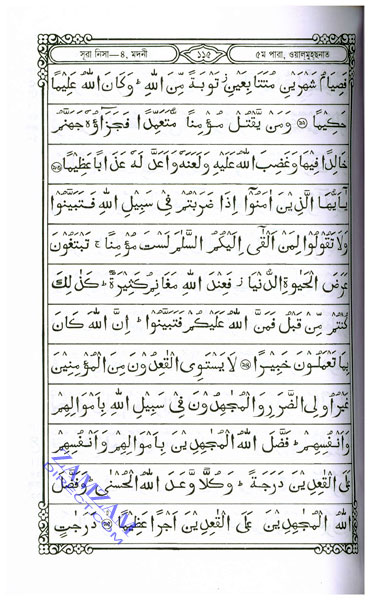 সূরা নিসা—৪, মদনী ১১৫ ৫ম পারা, ওয়ালমুহছনাত
فَصِيَامُ شَهْرَيْنِ مُتَتَابِعَيْنِ تَوْبَةً مِّنَ اللهِ ؕ وَكَانَ اللهُ عَلِيْمًا
حَكِيْمًا ۝ وَمَنْ يَّقْتُلْ مُؤْمِنًا مُّتَعَمِّدًا فَجَزَآؤُهٗ جَهَنَّمُ
خَالِدًا فِيْهَا وَغَضِبَ اللهُ عَلَيْهِ وَلَعَنَهٗ وَاَعَدَّ لَهٗ عَذَابًا عَظِيْمًا ۝
يٰٓاَيُّهَا الَّذِيْنَ اٰمَنُوْٓا اِذَا ضَرَبْتُمْ فِيْ سَبِيْلِ اللهِ فَتَبَيَّنُوْا
وَلَا تَقُوْلُوْا لِمَنْ اَلْقٰٓى اِلَيْكُمُ السَّلٰمَ لَسْتَ مُؤْمِنًا ۚ تَبْتَغُوْنَ
عَرَضَ الْحَيٰوةِ الدُّنْيَا ز فَعِنْدَ اللهِ مَغَانِمُ كَثِيْرَةٌ ؕ كَذٰلِكَ
كُنْتُمْ مِّنْ قَبْلُ فَمَنَّ اللهُ عَلَيْكُمْ فَتَبَيَّنُوْا ؕ اِنَّ اللهَ كَانَ
بِمَا تَعْمَلُوْنَ خَبِيْرًا ۝ لَا يَسْتَوِى الْقٰعِدُوْنَ مِنَ الْمُؤْمِنِيْنَ
غَيْرُ اُولِى الضَّرَرِ وَالْمُجٰهِدُوْنَ فِيْ سَبِيْلِ اللهِ بِاَمْوَالِهِمْ
وَاَنْفُسِهِمْ ؕ فَضَّلَ اللهُ الْمُجٰهِدِيْنَ بِاَمْوَالِهِمْ وَاَنْفُسِهِمْ
عَلَى الْقٰعِدِيْنَ دَرَجَةً ؕ وَكُلًّا وَّعَدَ اللهُ الْحُسْنٰى ؕ وَفَضَّلَ
اللهُ الْمُجٰهِدِيْنَ عَلَى الْقٰعِدِيْنَ اَجْرًا عَظِيْمًا ۝ دَرَجٰتٍ
ZAMZAM
DIRECT.COM